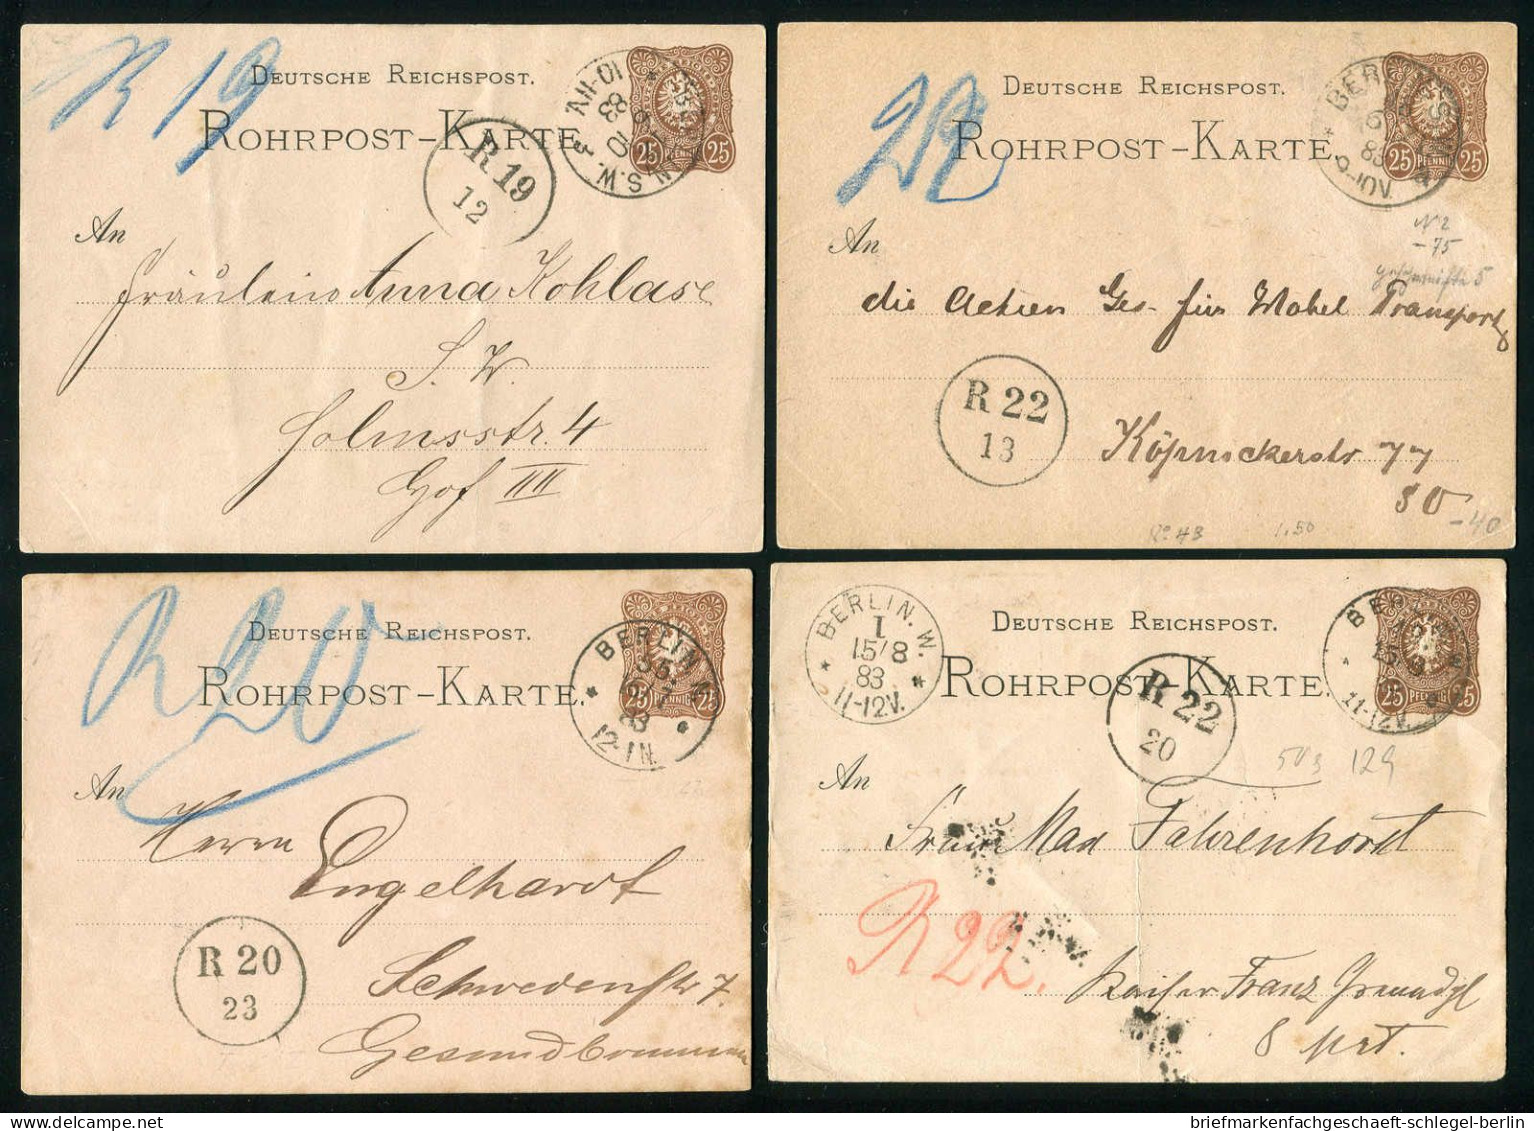 R 19
DEUTSCHE REICHSPOST.
ROHRPOST-KARTE.
25 PFENNIG 25
N. S.W.
10 6 83
10-11V.
R 19
12
An
Fräulein Anna Kohlase
S. W.
Solmsstr. 4
Hof III
22
DEUTSCHE REICHSPOST.
ROHRPOST-KARTE.
25 PFENNIG 25
BERLIN
83
9-10V.
N 2
-75
An
die Actien Ges. für Möbel Transport
R 22
13
Köpnickerstr 77
SO
-40
1.50
R 20
DEUTSCHE REICHSPOST.
ROHRPOST-KARTE.
25 PFENNIG 25
BERLIN
83
12-1N.
An
Herrn
Engelhardt
R 20
23
Schwedenstr 7.
Gesundbrunnen
BERLIN. W.
I
15/8
83
11-12V.
DEUTSCHE REICHSPOST.
ROHRPOST-KARTE.
25 PFENNIG 25
BERLIN. W.
15/8
11-12V.
R 22
20
129
An
Frau Max Fahrenhorst
R 22.
Kaiser Franz Grenadpl
8 part.
briefmarkenfachgeschaeft-schlegel-berlin